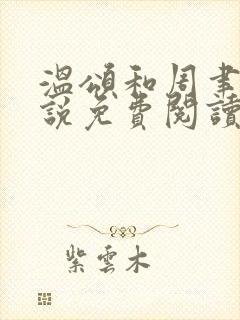 溫頌和周聿
說免費閱讀
紫雲木